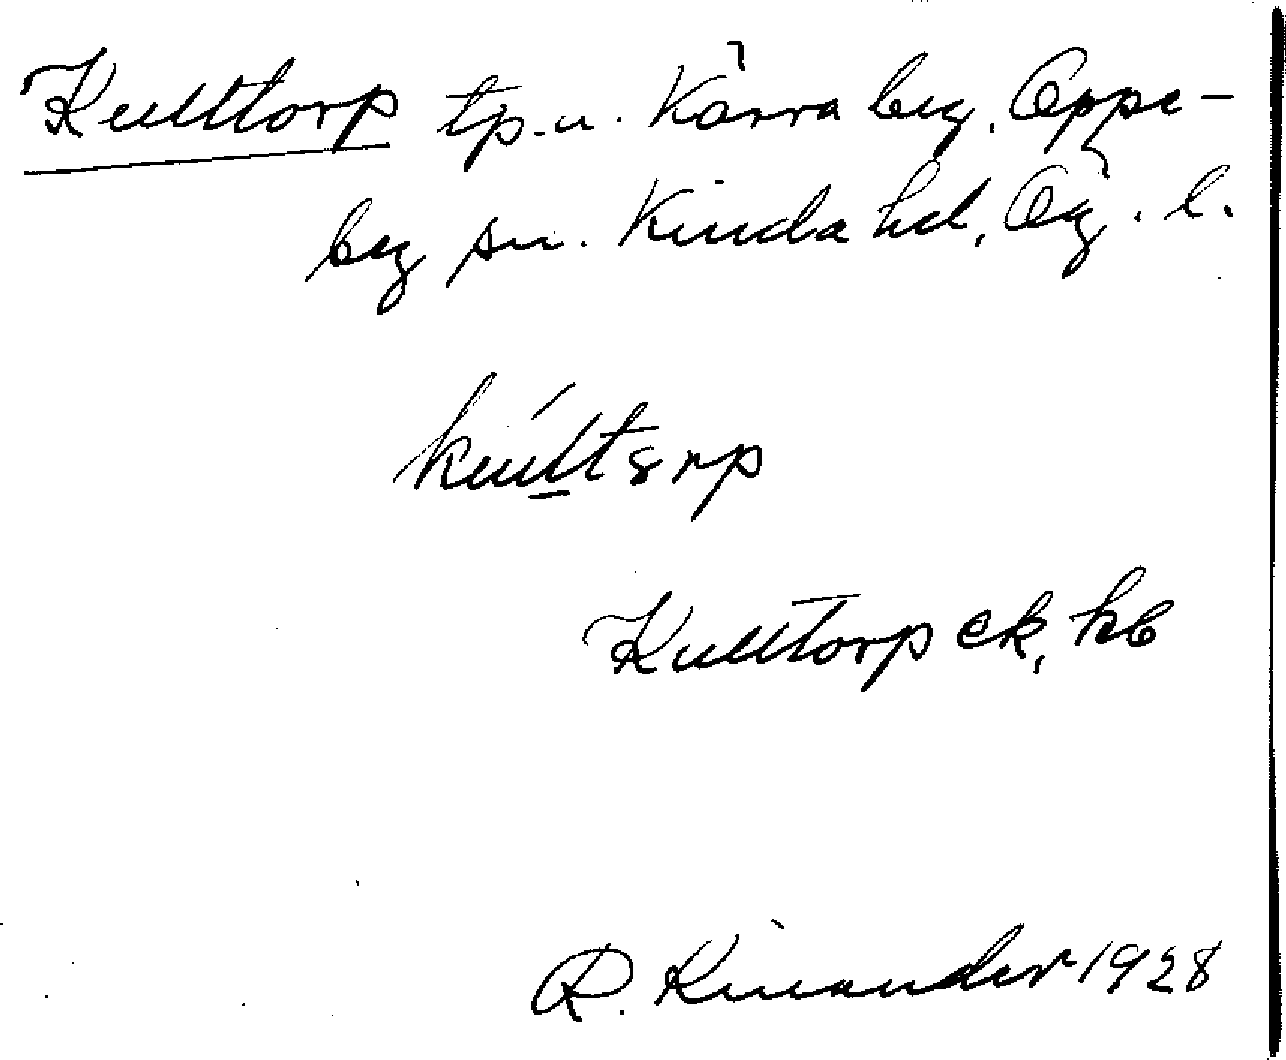 Kulltorp tp. u. Kärra by, Oppe-
by sn. Kinda hd, Ög. l.
kúlltorp
Kulltorp ek, kb
R. Kinander 1928